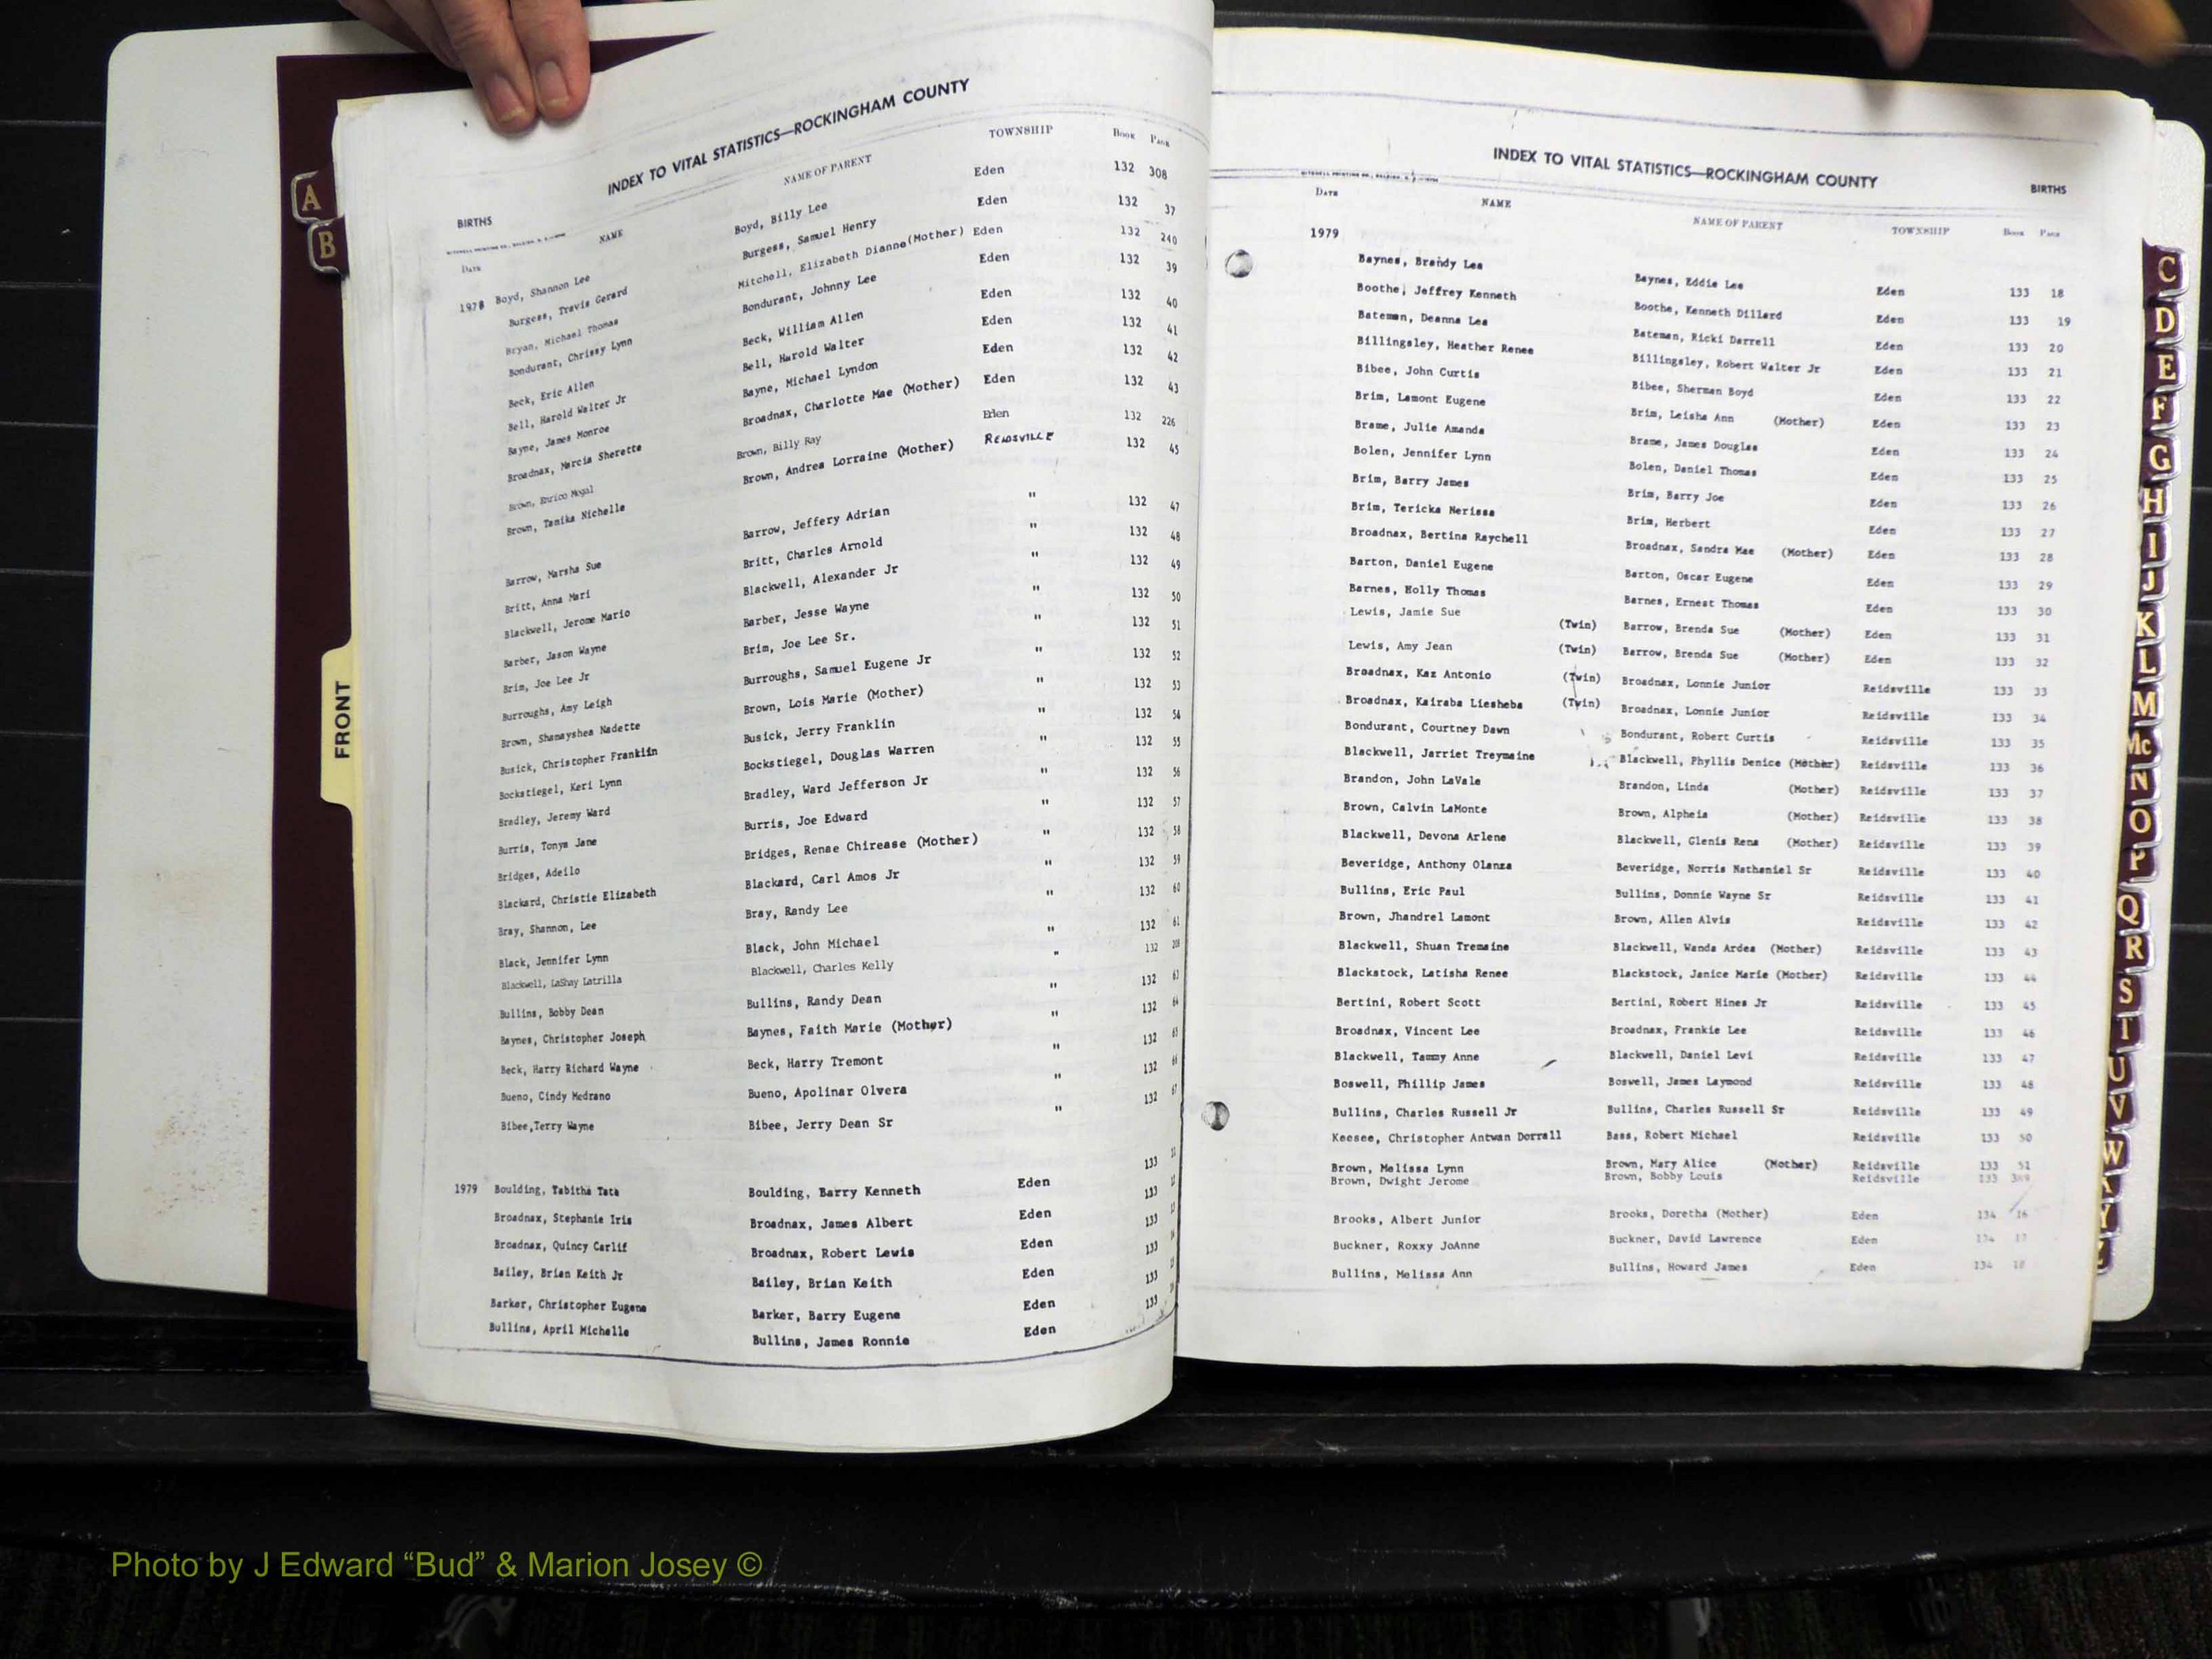 A
B
FRONT
INDEX TO VITAL STATISTICS—ROCKINGHAM COUNTY
BIRTHS
DATE NAME NAME OF PARENT TOWNSHIP BOOK PAGE
1978 Boyd, Shannon Lee Boyd, Billy Lee Eden 132 308
Burgess, Travis Gerard Burgess, Samuel Henry Eden 132 37
Bryan, Michael Thomas Mitchell, Elizabeth Dianne(Mother) Eden 132 240
Bondurant, Chrissy Lynn Bondurant, Johnny Lee Eden 132 39
Beck, Eric Allen Beck, William Allen Eden 132 40
Bell, Harold Walter Jr Bell, Harold Walter Eden 132 41
Bayne, James Monroe Bayne, Michael Lyndon Eden 132 42
Broadnax, Marcia Sherette Broadnax, Charlotte Mae (Mother) Eden 132 43
Brown, Enrico Mogal Brown, Billy Ray Eden 132 226
Brown, Tanika Nichelle Brown, Andrea Lorraine (Mother) REIDSVILLE 132 45
Barrow, Marsha Sue Barrow, Jeffery Adrian " 132 47
Britt, Anna Mari Britt, Charles Arnold " 132 48
Blackwell, Jerome Mario Blackwell, Alexander Jr " 132 49
Barber, Jason Wayne Barber, Jesse Wayne " 132 50
Brim, Joe Lee Jr Brim, Joe Lee Sr. " 132 51
Burroughs, Amy Leigh Burroughs, Samuel Eugene Jr " 132 52
Brown, Shamayshea Nadette Brown, Lois Marie (Mother) " 132 53
Busick, Christopher Franklin Busick, Jerry Franklin " 132 54
Bockstiegel, Keri Lynn Bockstiegel, Douglas Warren " 132 55
Bradley, Jeremy Ward Bradley, Ward Jefferson Jr " 132 56
Burris, Tonya Jane Burris, Joe Edward " 132 57
Bridges, Adeilo Bridges, Renae Chirease (Mother) " 132 58
Blackard, Christie Elizabeth Blackard, Carl Amos Jr " 132 59
Bray, Shannon, Lee Bray, Randy Lee " 132 60
Black, Jennifer Lynn Black, John Michael " 132 61
Blackwell, LaShay Latrilla Blackwell, Charles Kelly " 132
Bullins, Bobby Dean Bullins, Randy Dean " 132 63
Baynes, Christopher Joseph Baynes, Faith Marie (Mother) " 132 64
Beck, Harry Richard Wayne Beck, Harry Tremont " 132 65
Bueno, Cindy Medrano Bueno, Apolinar Olvera " 132 66
Bibee,Terry Wayne Bibee, Jerry Dean Sr " 132 67
1979 Boulding, Tabitha Tata Boulding, Barry Kenneth Eden 133
Broadnax, Stephanie Iris Broadnax, James Albert Eden 133
Broadnax, Quincy Carlif Broadnax, Robert Lewis Eden 133
Bailey, Brian Keith Jr Bailey, Brian Keith Eden 133
Barker, Christopher Eugene Barker, Barry Eugene Eden 133
Bullins, April Michelle Bullins, James Ronnie Eden 133
INDEX TO VITAL STATISTICS—ROCKINGHAM COUNTY
BIRTHS
DATE NAME NAME OF PARENT TOWNSHIP BOOK PAGE
1979
Baynes, Brandy Lea Baynes, Eddie Lee Eden 133 18
Boothe, Jeffrey Kenneth Boothe, Kenneth Dillard Eden 133 19
Bateman, Deanna Lea Bateman, Ricki Darrell Eden 133 20
Billingsley, Heather Renee Billingsley, Robert Walter Jr Eden 133 21
Bibee, John Curtis Bibee, Sherman Boyd Eden 133 22
Brim, Lamont Eugene Brim, Leisha Ann (Mother) Eden 133 23
Brame, Julie Amanda Brame, James Douglas Eden 133 24
Bolen, Jennifer Lynn Bolen, Daniel Thomas Eden 133 25
Brim, Barry James Brim, Barry Joe Eden 133 26
Brim, Tericka Nerissa Brim, Herbert Eden 133 27
Broadnax, Bertina Raychell Broadnax, Sandra Mae (Mother) Eden 133 28
Barton, Daniel Eugene Barton, Oscar Eugene Eden 133 29
Barnes, Holly Thomas Barnes, Ernest Thomas Eden 133 30
Lewis, Jamie Sue (Twin) Barrow, Brenda Sue (Mother) Eden 133 31
Lewis, Amy Jean (Twin) Barrow, Brenda Sue (Mother) Eden 133 32
Broadnax, Kaz Antonio (Twin) Broadnax, Lonnie Junior Reidsville 133 33
Broadnax, Kairaba Liesheba (Twin) Broadnax, Lonnie Junior Reidsville 133 34
Bondurant, Courtney Dawn Bondurant, Robert Curtis Reidsville 133 35
Blackwell, Jarriet Treymaine Blackwell, Phyllis Denice (Mother) Reidsville 133 36
Brandon, John LaVale Brandon, Linda (Mother) Reidsville 133 37
Brown, Calvin LaMonte Brown, Alpheia (Mother) Reidsville 133 38
Blackwell, Devona Arlene Blackwell, Glenis Rena (Mother) Reidsville 133 39
Beveridge, Anthony Olanza Beveridge, Norris Nathaniel Sr Reidsville 133 40
Bullins, Eric Paul Bullins, Donnie Wayne Sr Reidsville 133 41
Brown, Jhandrel Lamont Brown, Allen Alvis Reidsville 133 42
Blackwell, Shuan Tremaine Blackwell, Wanda Ardea (Mother) Reidsville 133 43
Blackstock, Latisha Renee Blackstock, Janice Marie (Mother) Reidsville 133 44
Bertini, Robert Scott Bertini, Robert Hines Jr Reidsville 133 45
Broadnax, Vincent Lee Broadnax, Frankie Lee Reidsville 133 46
Blackwell, Tammy Anne Blackwell, Daniel Levi Reidsville 133 47
Boswell, Phillip James Boswell, James Laymond Reidsville 133 48
Bullins, Charles Russell Jr Bullins, Charles Russell Sr Reidsville 133 49
Keesee, Christopher Antwan Dorrall Bass, Robert Michael Reidsville 133 50
Brown, Melissa Lynn Brown, Mary Alice (Mother) Reidsville 133 51
Brown, Dwight Jerome Brown, Bobby Louis Reidsville 133 389
Brooks, Albert Junior Brooks, Doretha (Mother) Eden 134 16
Buckner, Roxxy JoAnne Buckner, David Lawrence Eden 134 17
Bullins, Melissa Ann Bullins, Howard James Eden 134 18
C
D
E
F
G
H
I
J
K
L
M
Mc
N
O
P
Q
R
S
T
U
V
W
Y
Photo by J Edward “Bud” & Marion Josey ©